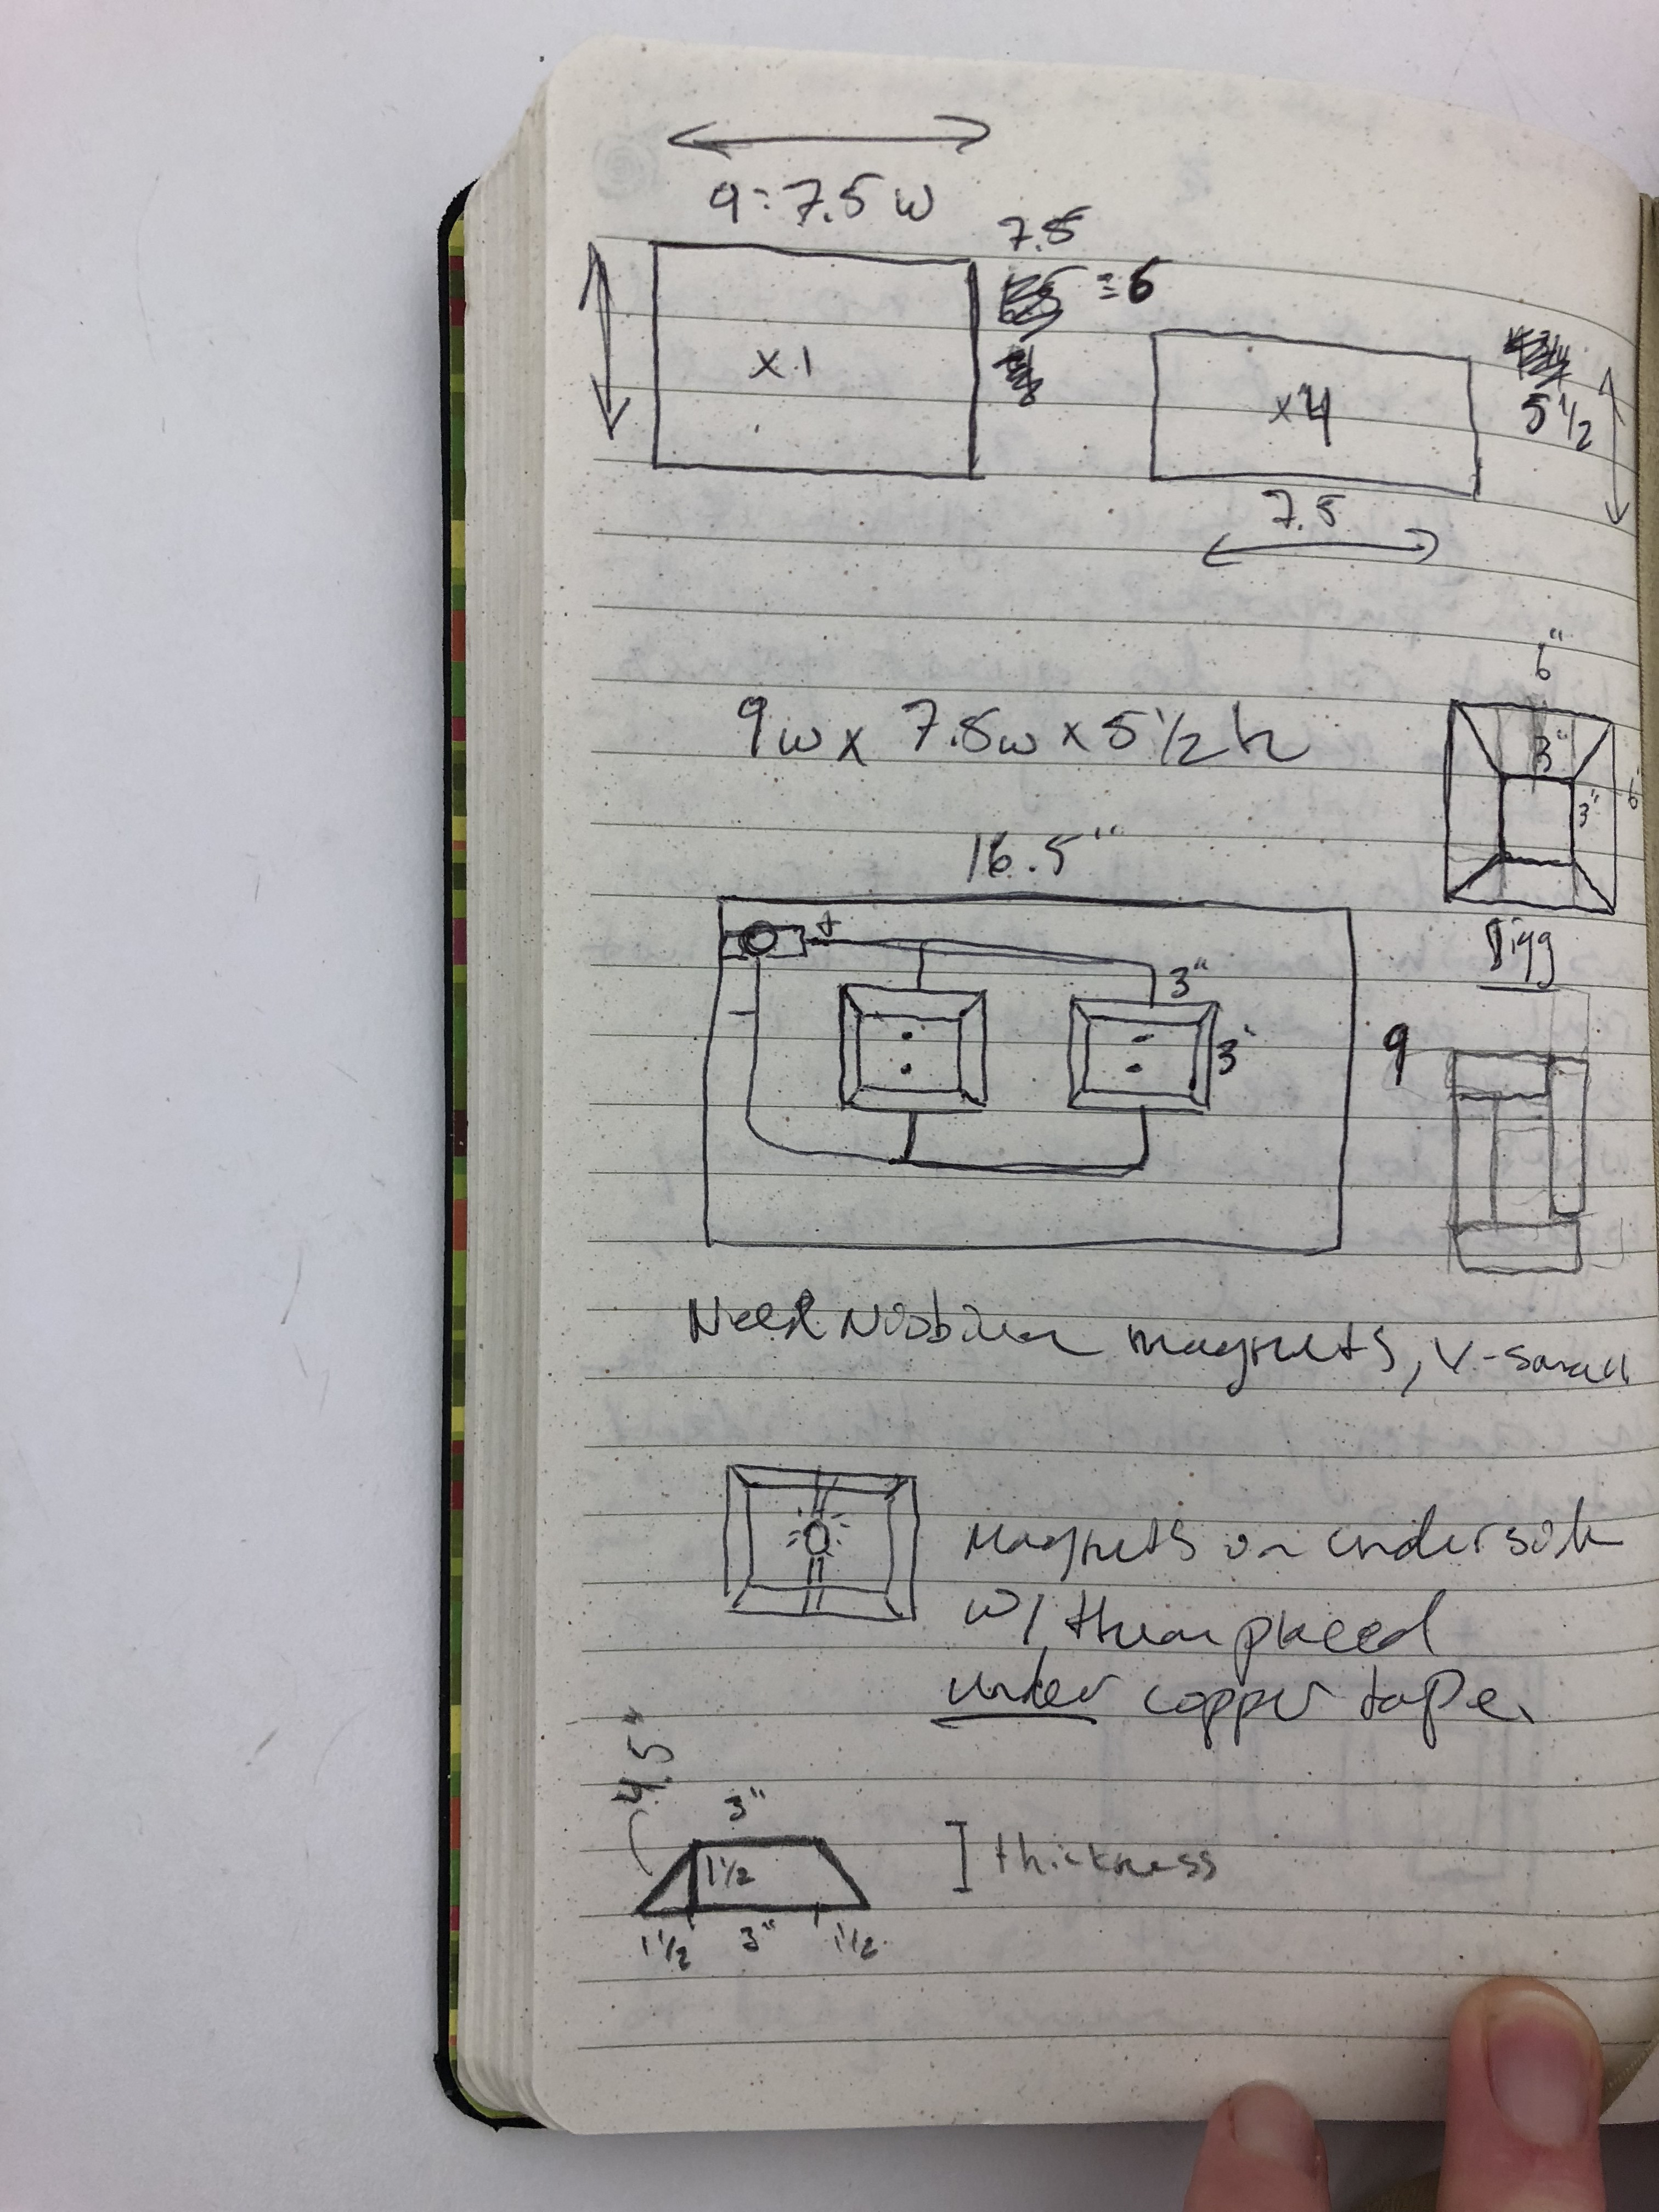 9 = 7.5 w
x 1
7.5
= 6
x4
7.5
5 1/2
9 w x 7.5 w x 5 1/2 h
16.5"
6"
3"
3"
6"
-
+
3"
3"
9
Jigg
Need Niobium magnets, v-small
Magnets on underside
w/ them placed
under copper tape.
4.5"
3"
1 1/2
1 1/2
3"
1 1/2
thickness